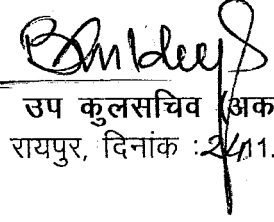 उप कुलसचिव (अक
रायपुर, दिनांक : 24/11.